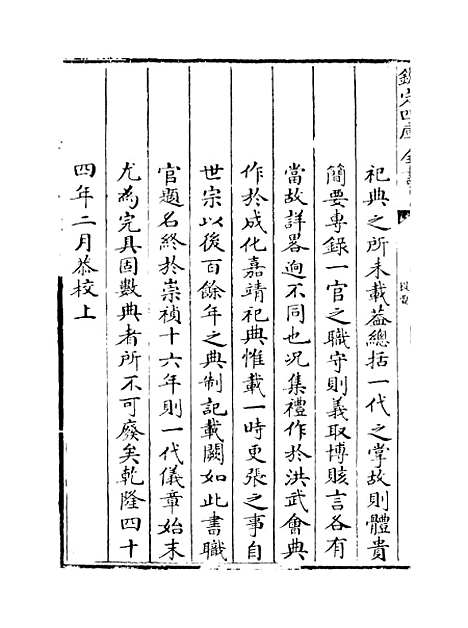 欽定四庫全書
提要
祀典之所未載葢總括一代之掌故則體貴
簡要專錄一官之職守則義取博賅言各有
當故詳畧逈不同也况集禮作於洪武會典
作於成化嘉靖祀典惟載一時更張之事自
世宗以後百餘年之典制記載闕如此書職
官題名終於崇禎十六年則一代儀章始末
尤為完具固數典者所不可廢矣乾隆四十
四年二月恭校上